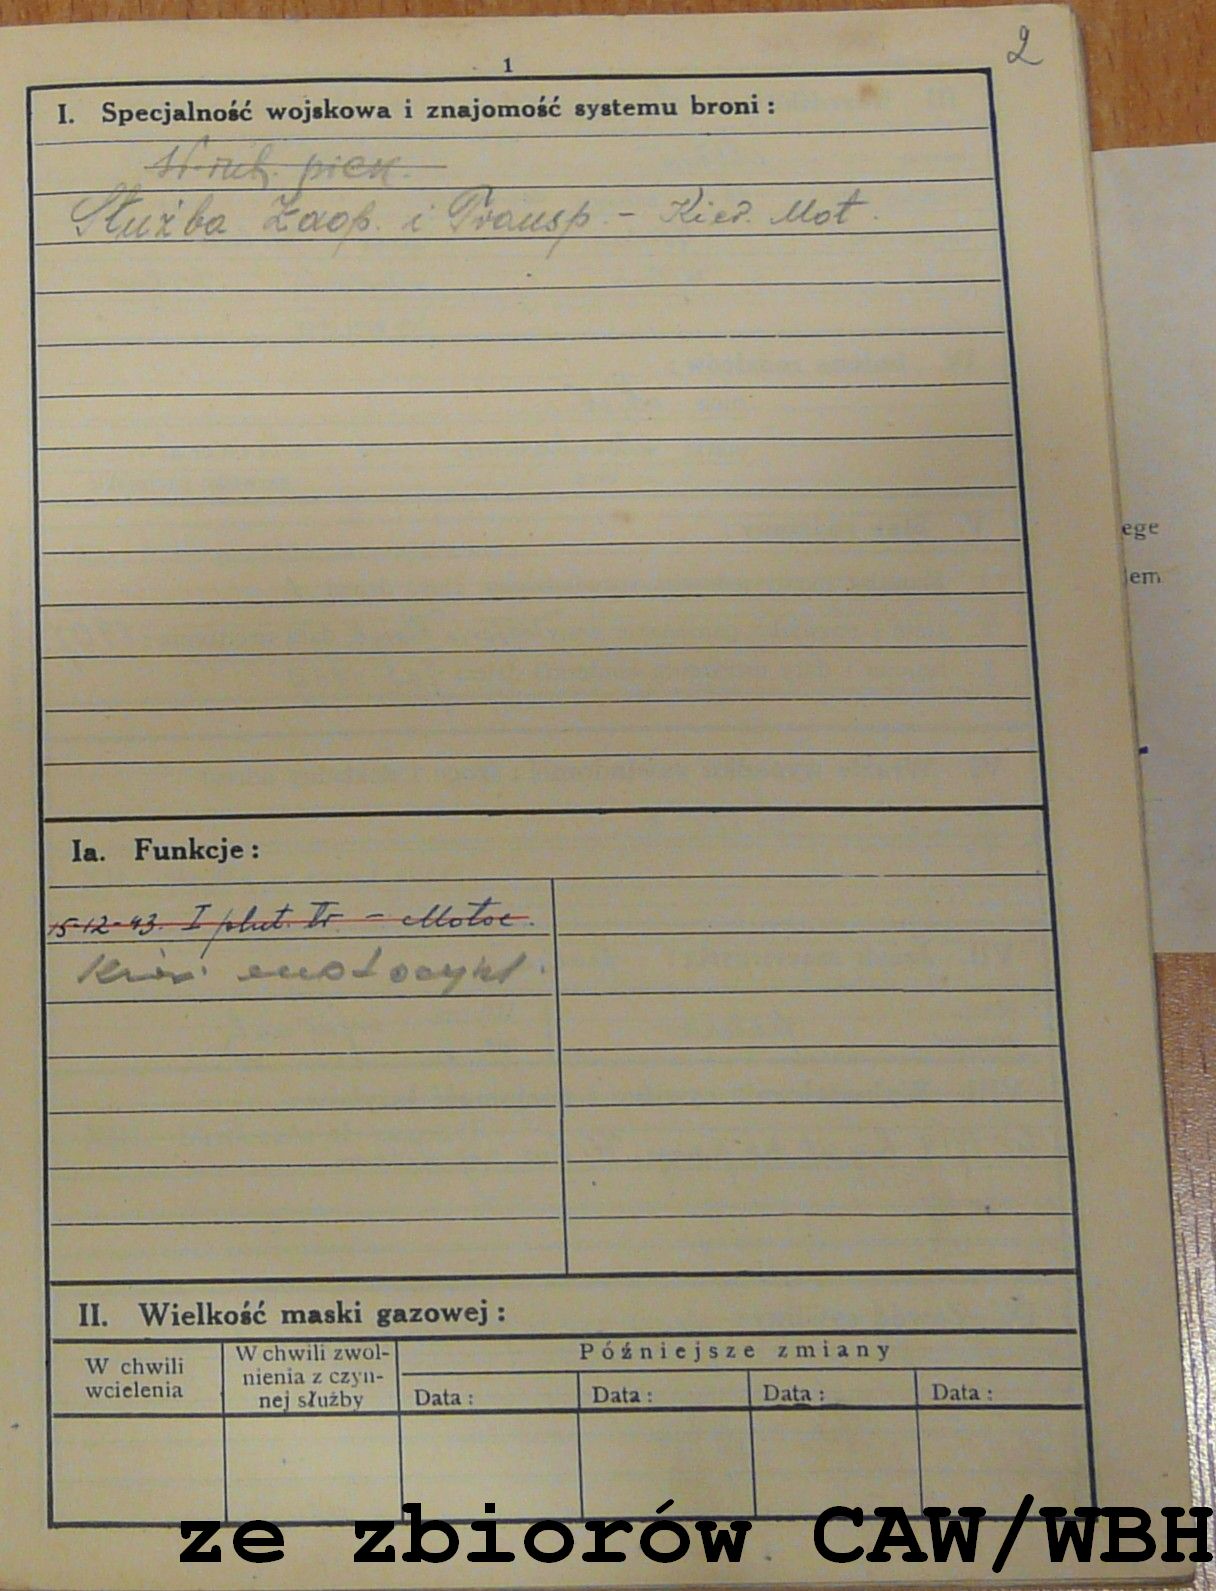 2
1
I. Specjalność wojskowa i znajomość systemu broni :
piech.
Służba Zaop. i Transp. - Kier. Mot.
Ia. Funkcje :
15-12-43. I plut. Tr - Motoc.
Kier. motocykl.
II. Wielkość maski gazowej :
W chwili wcielenia
W chwili zwol-
nienia z czyn-
nej służby
Późniejsze zmiany
Data :
Data :
Data :
Data :
ege
em
ze zbiorów CAW/WBH